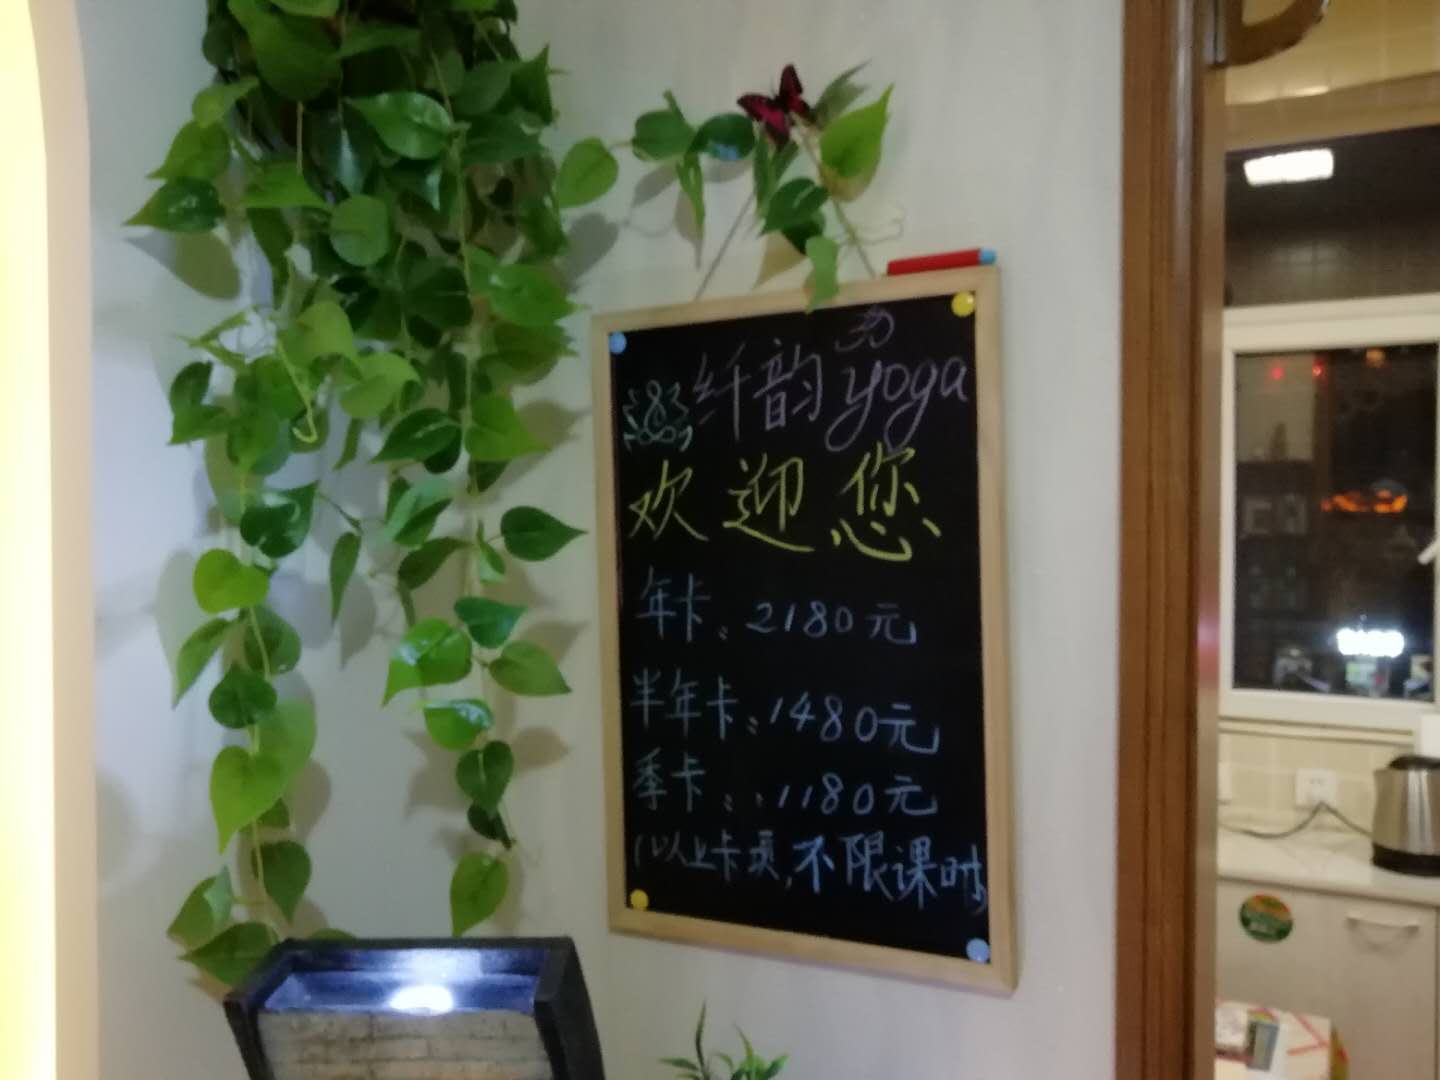 纤韵yoga
欢迎您
年卡：2180元
半年卡：1480元
季卡：1180元
(以上卡类,不限课时)